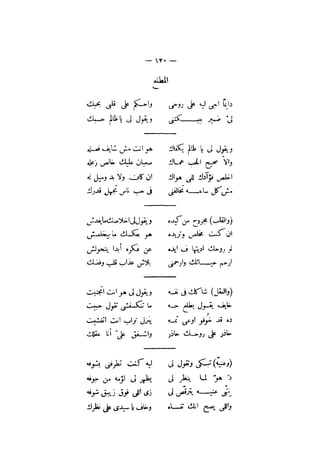 — ١٢٠ —
المطلع
دايمًا اجى ليه على روحى واحكم على قلبى بحبك
لى ضمير يبكتنى ويقول لى يا ظالم حسبك
ويقول لى يا ظالم كداك هو انت مش شايف فعله
والا صحيح الحب عماك صعبان عليك خالص زعله
اخلص فؤادك للى هواك ان كان ولا بد وميل له
مش كل ساعه تخالفنى فى حب ناس تجهل قدرك
(والقلب) مجروح من كيده ويقول لى اخلاصك ما يفدش
ان كنت مخلص وتريده هو عكسك ما يخلصش
نو روحك اديتها ف ايده عن فكره أبدا يتحولش
ارحم حياتك وارحمنى بلاش عذاب قلب وفضك
(والعقل) شاكك فى نفسه ويقول لى هو انت اتجنيت
خايف يقول بطلع حسه ما تنكسفشى تقول حبيت
ده قد خوفو اوعى تمسه ينزل تراب انت اتفشيت
حاذر على روحك حاذر واشفق على أنا عقلك
(وعنيه) تبكى وتقول لى ليه كنت تطرفنى بشوفه
ده هو لما ينظر لى يظهر لى لؤمه من جوفه
يتنى عنيه يترقص لى زى اللى فوق زيبق شوفه
واللى يصبح انك تنساه وخاف يا سيدى على نظرك